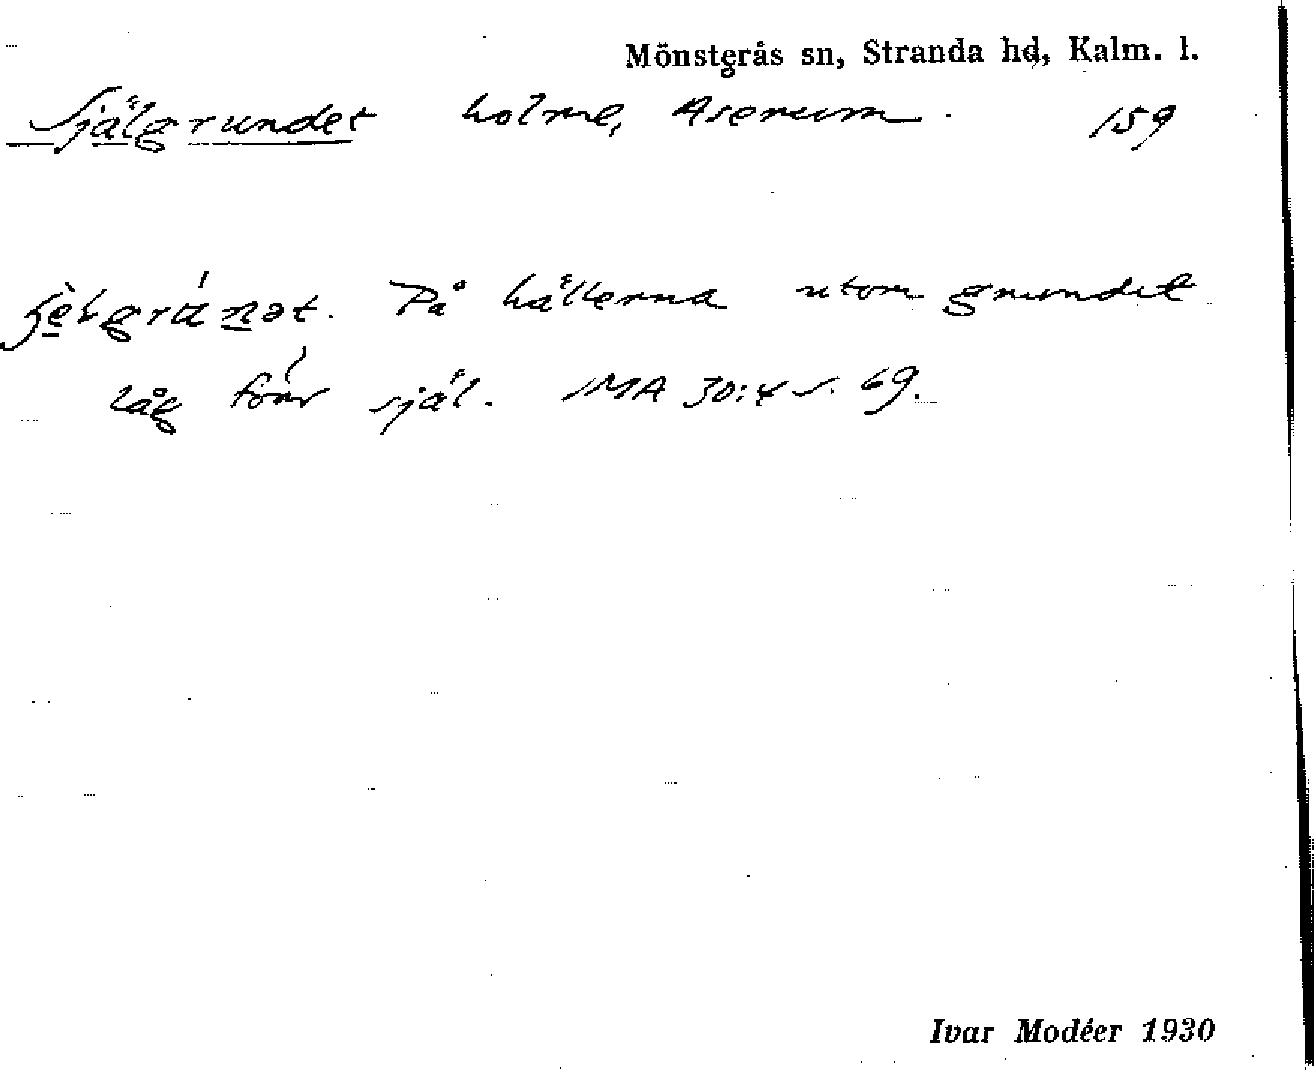 Mönsterås sn, Stranda hd, Kalm. l.
Själgrundet holme, Aserum. 159
På hällerna utom grundet
låg förr själ. IMA 30:4 s. 69.
Ivar Modéer 1930